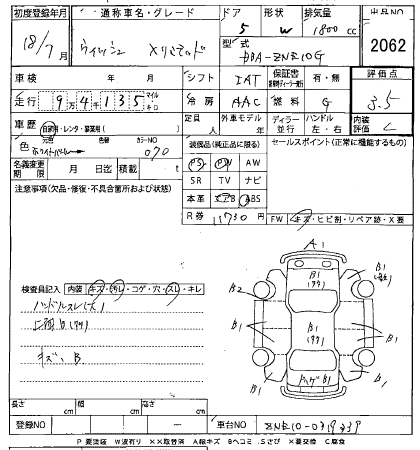 初度登録年月 通称車名・グレード ドア 形状 排気量 出品NO
18/7月 ウィッシュ Xリミテッド 5 W 1800cc 2062
型式 DBA-ZNE10G
車検 年 月 シフト IAT 保証書 有・無 評価点
走行 9万4千135 マイル キロ 冷房 AAC 燃料 G 3.5
車歴 自家用・レンタ・事業用( ) 定員 人 外車モデル 年 ディーラー 並行 ハンドル 左・右 内装評価 C
色 元色 ホワイトパール 色替 カラーNO 070 装備品(純正品に限る) セールスポイント(正常に機能するもの)
名義変更期限 月 日迄 積載 t PS PW AW
注意事項(欠品・修復・不具合箇所および状態) SR TV ナビ
本革 エアB ABS
R券 11730円 FW キズ・ヒビ割・リペア跡・X要
検査員記入 内装 キズ・汚れ・コゲ・穴・スレ・キレ
ハンドルスレ(大)
キズ、B
A1
B1
B2
B1
B1
B1
B1
B1
B1
長さ cm 幅 cm 高さ cm
登録NO 車台NO ZNE10-0319339
P要塗装 W波有り XX取替済 A線キズ Bヘコミ Sさび X要交換 C腐食